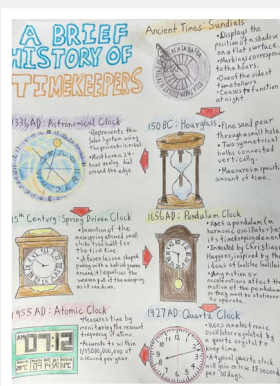 A BRIEF
HISTORY OF
TIMEKEEPERS
Ancient Times: Sundials
• Displays the
position of a shadow
on a flat surface.
• Markings correspond
to the hours.
• One of the oldest
timetellers
• Ceases to function
at night
1336 AD: Astronomical Clock
• Represents the
Solar System using
the geocentric model
• Most have a 24-
hour analog dial
around the edge
150 BC: Hourglass
• Fine sand pour
through small hole
• Two symmetric
bulbs connected
vertically.
• Measures a specific
amount of time.
15th Century: Spring Driven Clock
• Invention of the
mainspring allowed small
clocks to be built for
the first time
1656 AD: Pendulum Clock
• Uses a pendulum (a
harmonic oscillator) as
its timekeeping element
• Invented by Christiaan
Huygens, inspired by the
ideas of Galileo Galilei
• Any motion or
accelerations affect the
motion of the pendulum
so they must be stationary
to operate.
1955 AD: Atomic Clock
• Measures time by
monitoring the resonant
frequency of atoms.
• Accurate to within
09:12
1927 AD: Quartz Clock
• Uses an electronic
oscillator regulated by
a quartz crystal to
keep time.
• A typical quartz clock
will gain or lose 15 seconds
per 30 days.